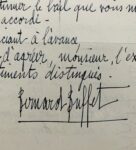 le bail que vous m
accordé.
ciant à l'avance,
d'agréer, monsieur, l'ex
ments distingués.
Bernard Buffet